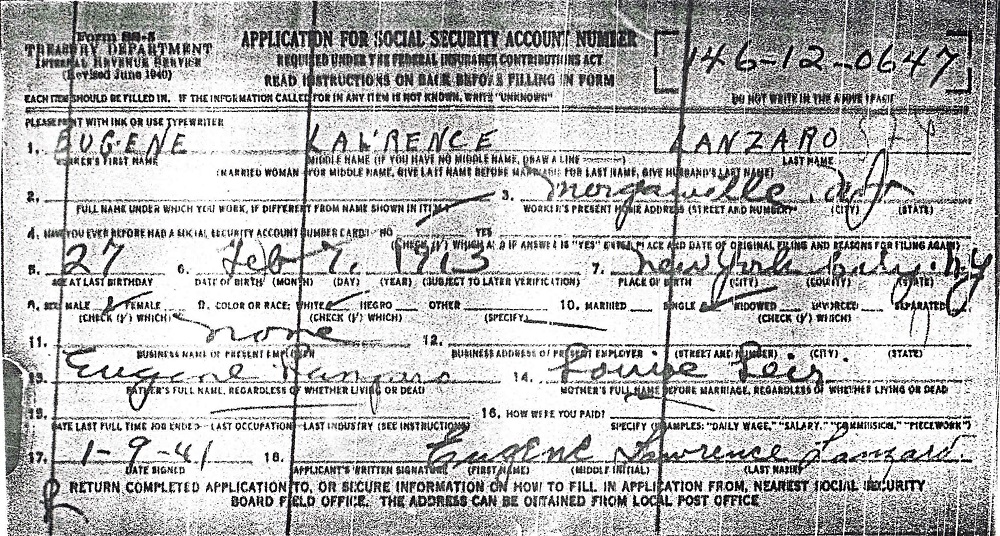 Form SS-5
TREASURY DEPARTMENT
INTERNAL REVENUE SERVICE
(Revised June 1940)
APPLICATION FOR SOCIAL SECURITY ACCOUNT NUMBER
REQUIRED UNDER THE FEDERAL INSURANCE CONTRIBUTIONS ACT
READ INSTRUCTIONS ON BACK BEFORE FILLING IN FORM
146-12-0647
DO NOT WRITE IN THE ABOVE SPACE
EACH ITEM SHOULD BE FILLED IN. IF THE INFORMATION CALLED FOR IN ANY ITEM IS NOT KNOWN, WRITE "UNKNOWN"
PLEASE PRINT WITH INK OR USE TYPEWRITER
1. EUGENE LAWRENCE LANZARO
WORKER'S FIRST NAME MIDDLE NAME (IF YOU HAVE NO MIDDLE NAME, DRAW A LINE ———) LAST NAME
(MARRIED WOMAN—FOR MIDDLE NAME, GIVE LAST NAME BEFORE MARRIAGE; FOR LAST NAME, GIVE HUSBAND'S LAST NAME)
2. 3. Morganville NJ
FULL NAME UNDER WHICH YOU WORK, IF DIFFERENT FROM NAME SHOWN IN ITEM 1 WORKER'S PRESENT HOME ADDRESS (STREET AND NUMBER) (CITY) (STATE)
4. HAVE YOU EVER BEFORE HAD A SOCIAL SECURITY ACCOUNT NUMBER CARD? NO YES
(CHECK (√) WHICH AND IF ANSWER IS "YES" ENTER PLACE AND DATE OF ORIGINAL FILING AND REASONS FOR FILING AGAIN)
5. 27 6. Feb 7, 1913 7. New York City, N.Y
AGE AT LAST BIRTHDAY DATE OF BIRTH (MONTH) (DAY) (YEAR) (SUBJECT TO LATER VERIFICATION) PLACE OF BIRTH (CITY) (COUNTY) (STATE)
8. SEX: MALE √ FEMALE 9. COLOR OR RACE: WHITE √ NEGRO OTHER 10. MARRIED SINGLE √ WIDOWED DIVORCED SEPARATED
(CHECK (√) WHICH) (CHECK (√) WHICH) (SPECIFY) (CHECK (√) WHICH)
11. none 12.
BUSINESS NAME OF PRESENT EMPLOYER BUSINESS ADDRESS OF PRESENT EMPLOYER (STREET AND NUMBER) (CITY) (STATE)
13. Eugene Lanzaro 14. Louise
FATHER'S FULL NAME, REGARDLESS OF WHETHER LIVING OR DEAD MOTHER'S FULL NAME BEFORE MARRIAGE, REGARDLESS OF WHETHER LIVING OR DEAD
15. 16. HOW WERE YOU PAID?
DATE LAST FULL TIME JOB ENDED—LAST OCCUPATION—LAST INDUSTRY (SEE INSTRUCTIONS) SPECIFY (EXAMPLES: "DAILY WAGE," "SALARY," "COMMISSION," "PIECEWORK")
17. 1-9-41 18. Eugene Lawrence Lanzaro
DATE SIGNED APPLICANT'S WRITTEN SIGNATURE (FIRST NAME) (MIDDLE INITIAL) (LAST NAME)
RETURN COMPLETED APPLICATION TO, OR SECURE INFORMATION ON HOW TO FILL IN APPLICATION FROM, NEAREST SOCIAL SECURITY
BOARD FIELD OFFICE. THE ADDRESS CAN BE OBTAINED FROM LOCAL POST OFFICE